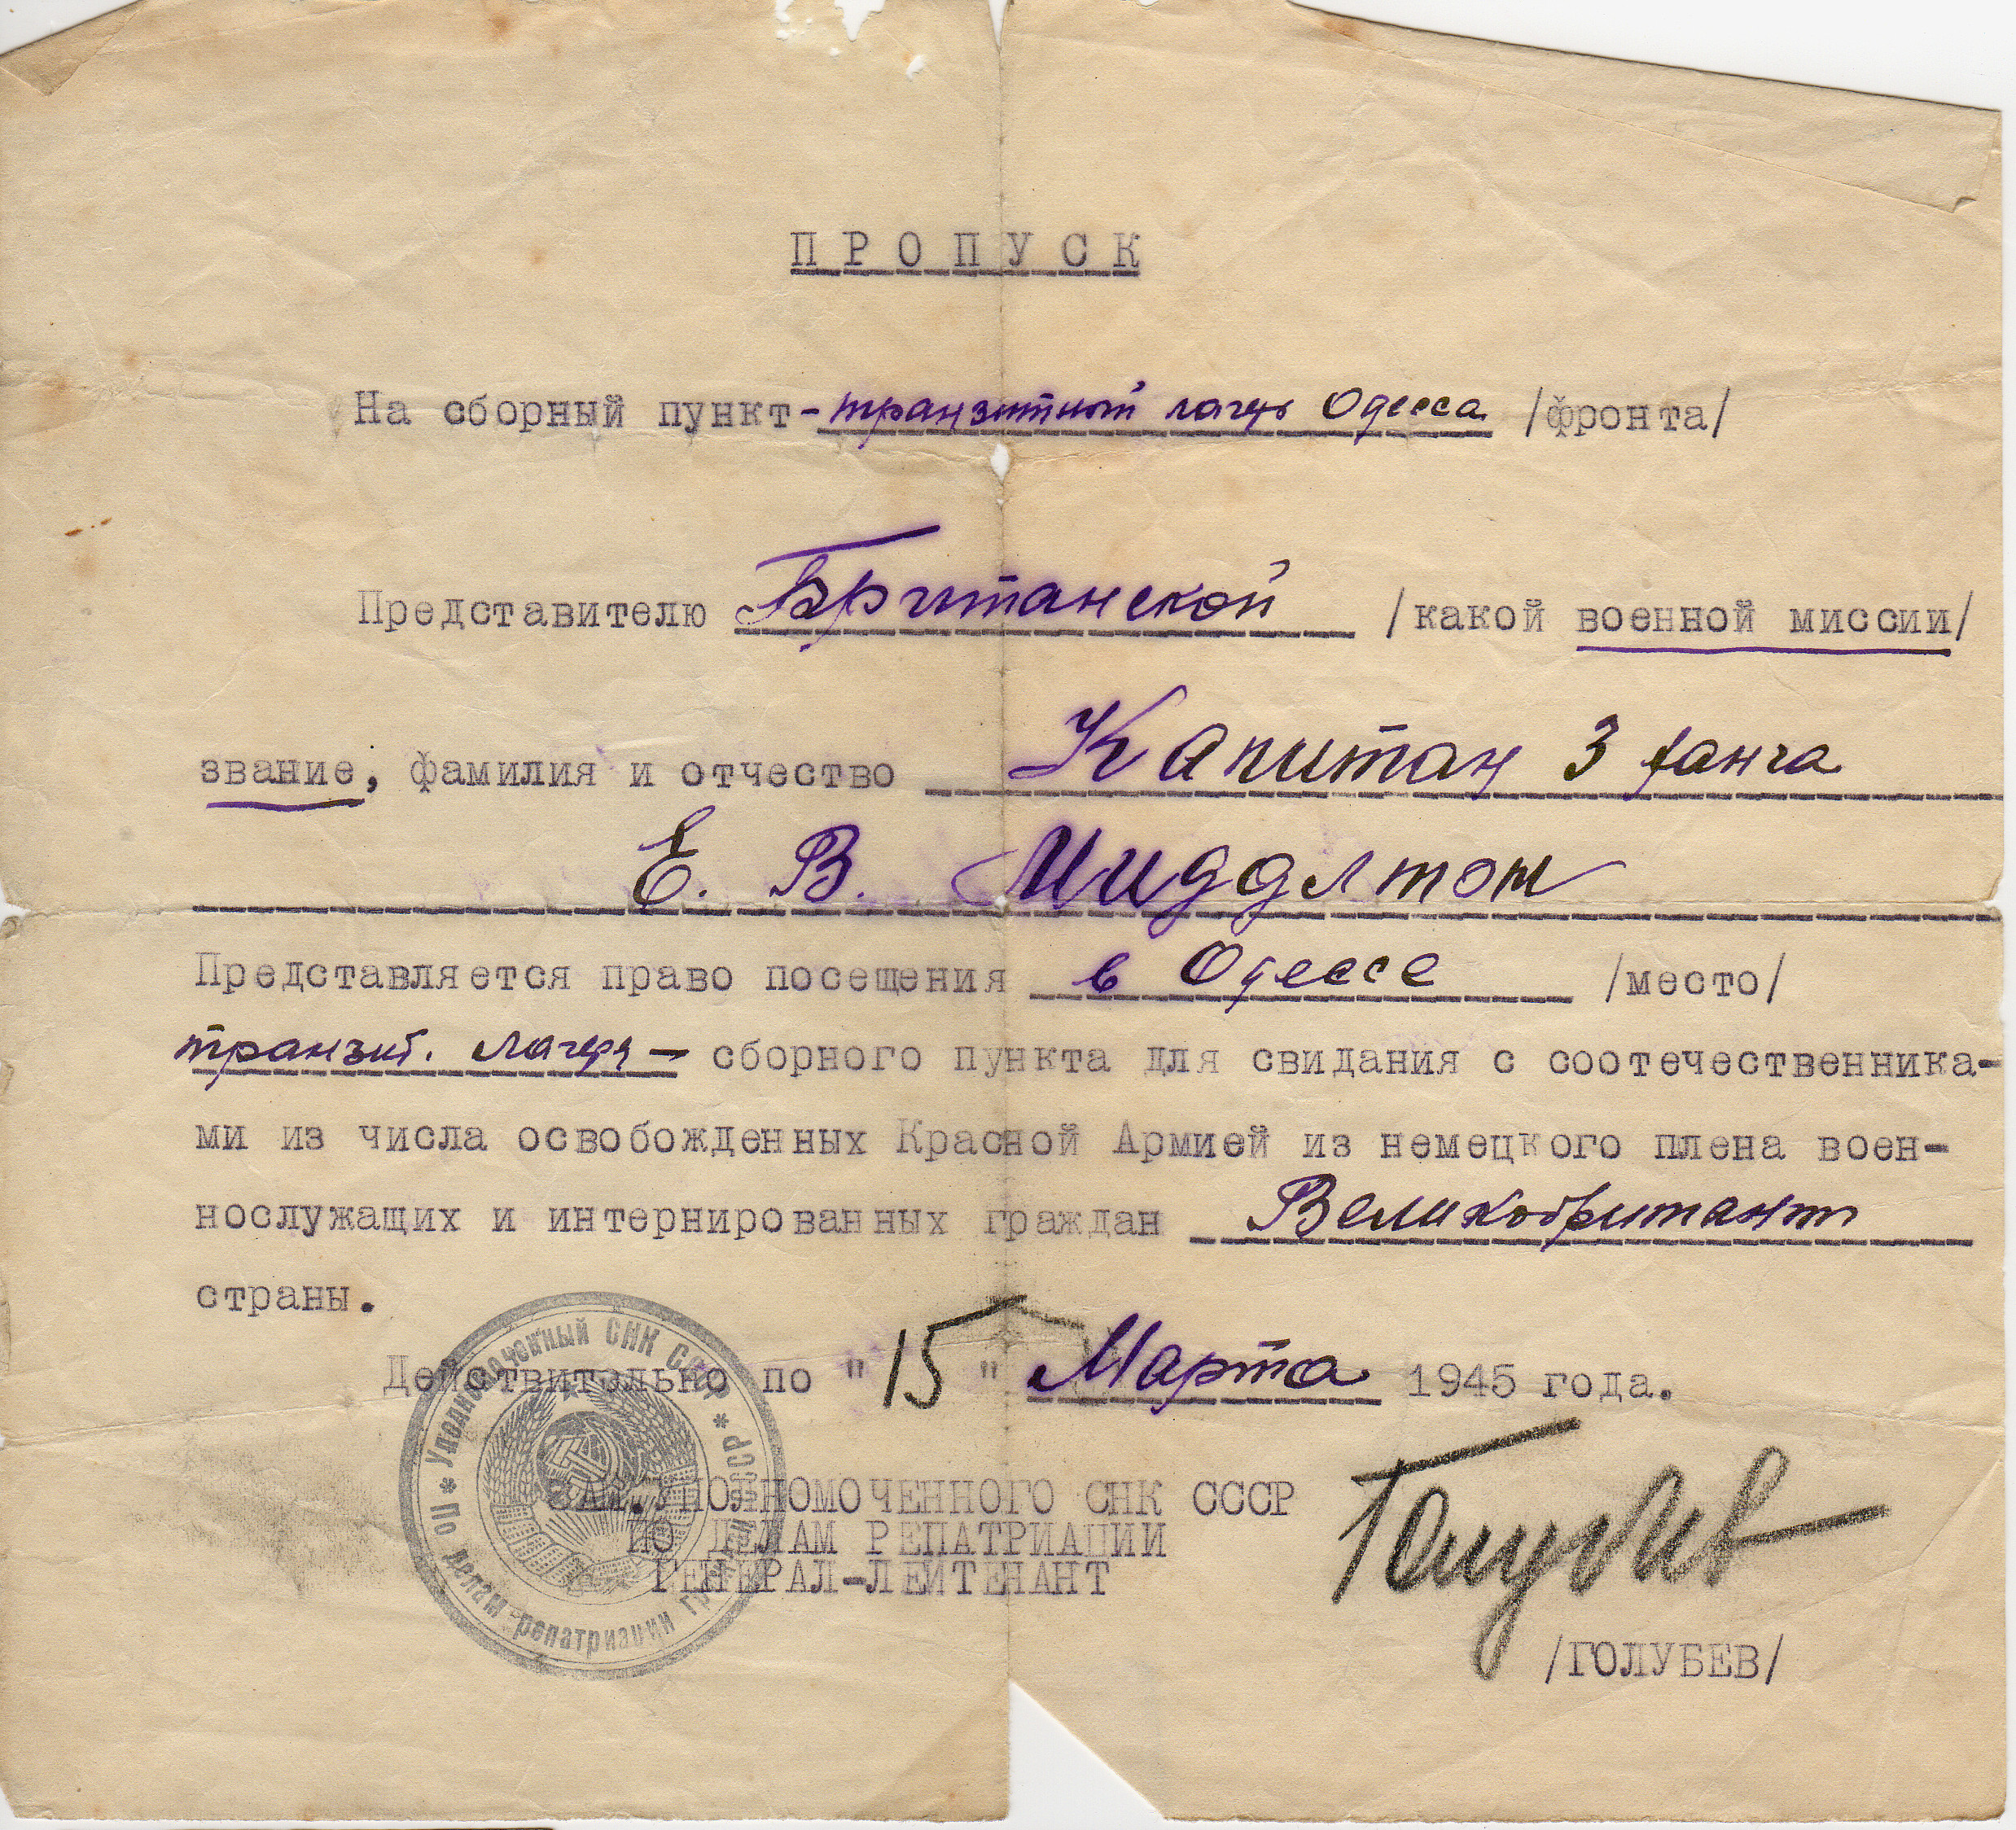 ПРОПУСК
На сборный пункт- транзитный лагерь Одесса /фронта/
Представителю Британской /какой военной миссии/
звание, фамилия и отчество Капитан 3 ранга
Е. В. Миддлтон
Представляется право посещения в Одессе /место/
транзит. лагеря — сборного пункта для свидания с соотечественника-
ми из числа освобожденных Красной Армией из немецкого плена воен-
нослужащих и интернированных граждан
страны.
Действительно по "15" Марта 1945 года.
ЗАМ.УПОЛНОМОЧЕННОГО СНК СССР
ПО ДЕЛАМ РЕПАТРИАЦИИ
ГЕНЕРАЛ-ЛЕЙТЕНАНТ
Голубев
/ГОЛУБЕВ/
Уполномоченный СНК СССР * По делам репатриации граждан СССР *